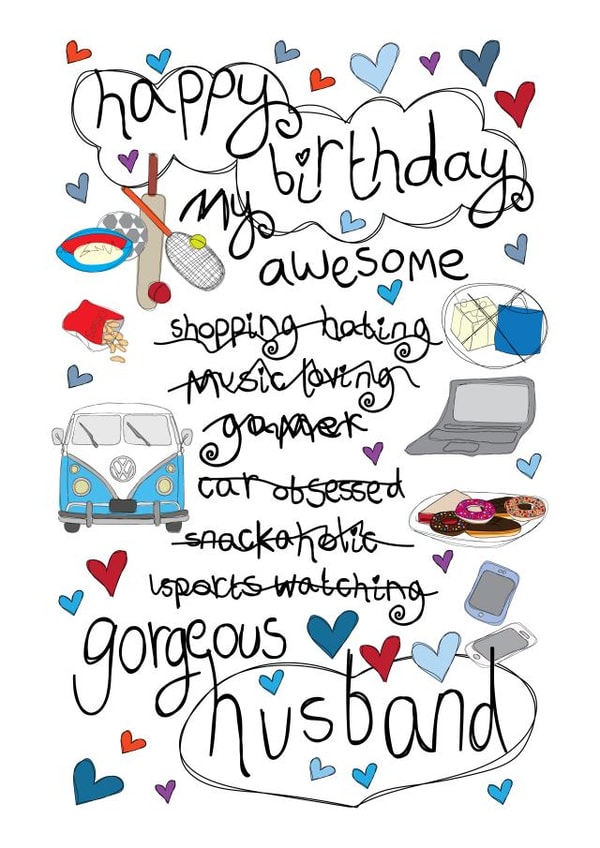 happy
birthday
My
awesome
shopping hating
Music loving
gamer
car obsessed
snackaholic
sports watching
gorgeous
husband